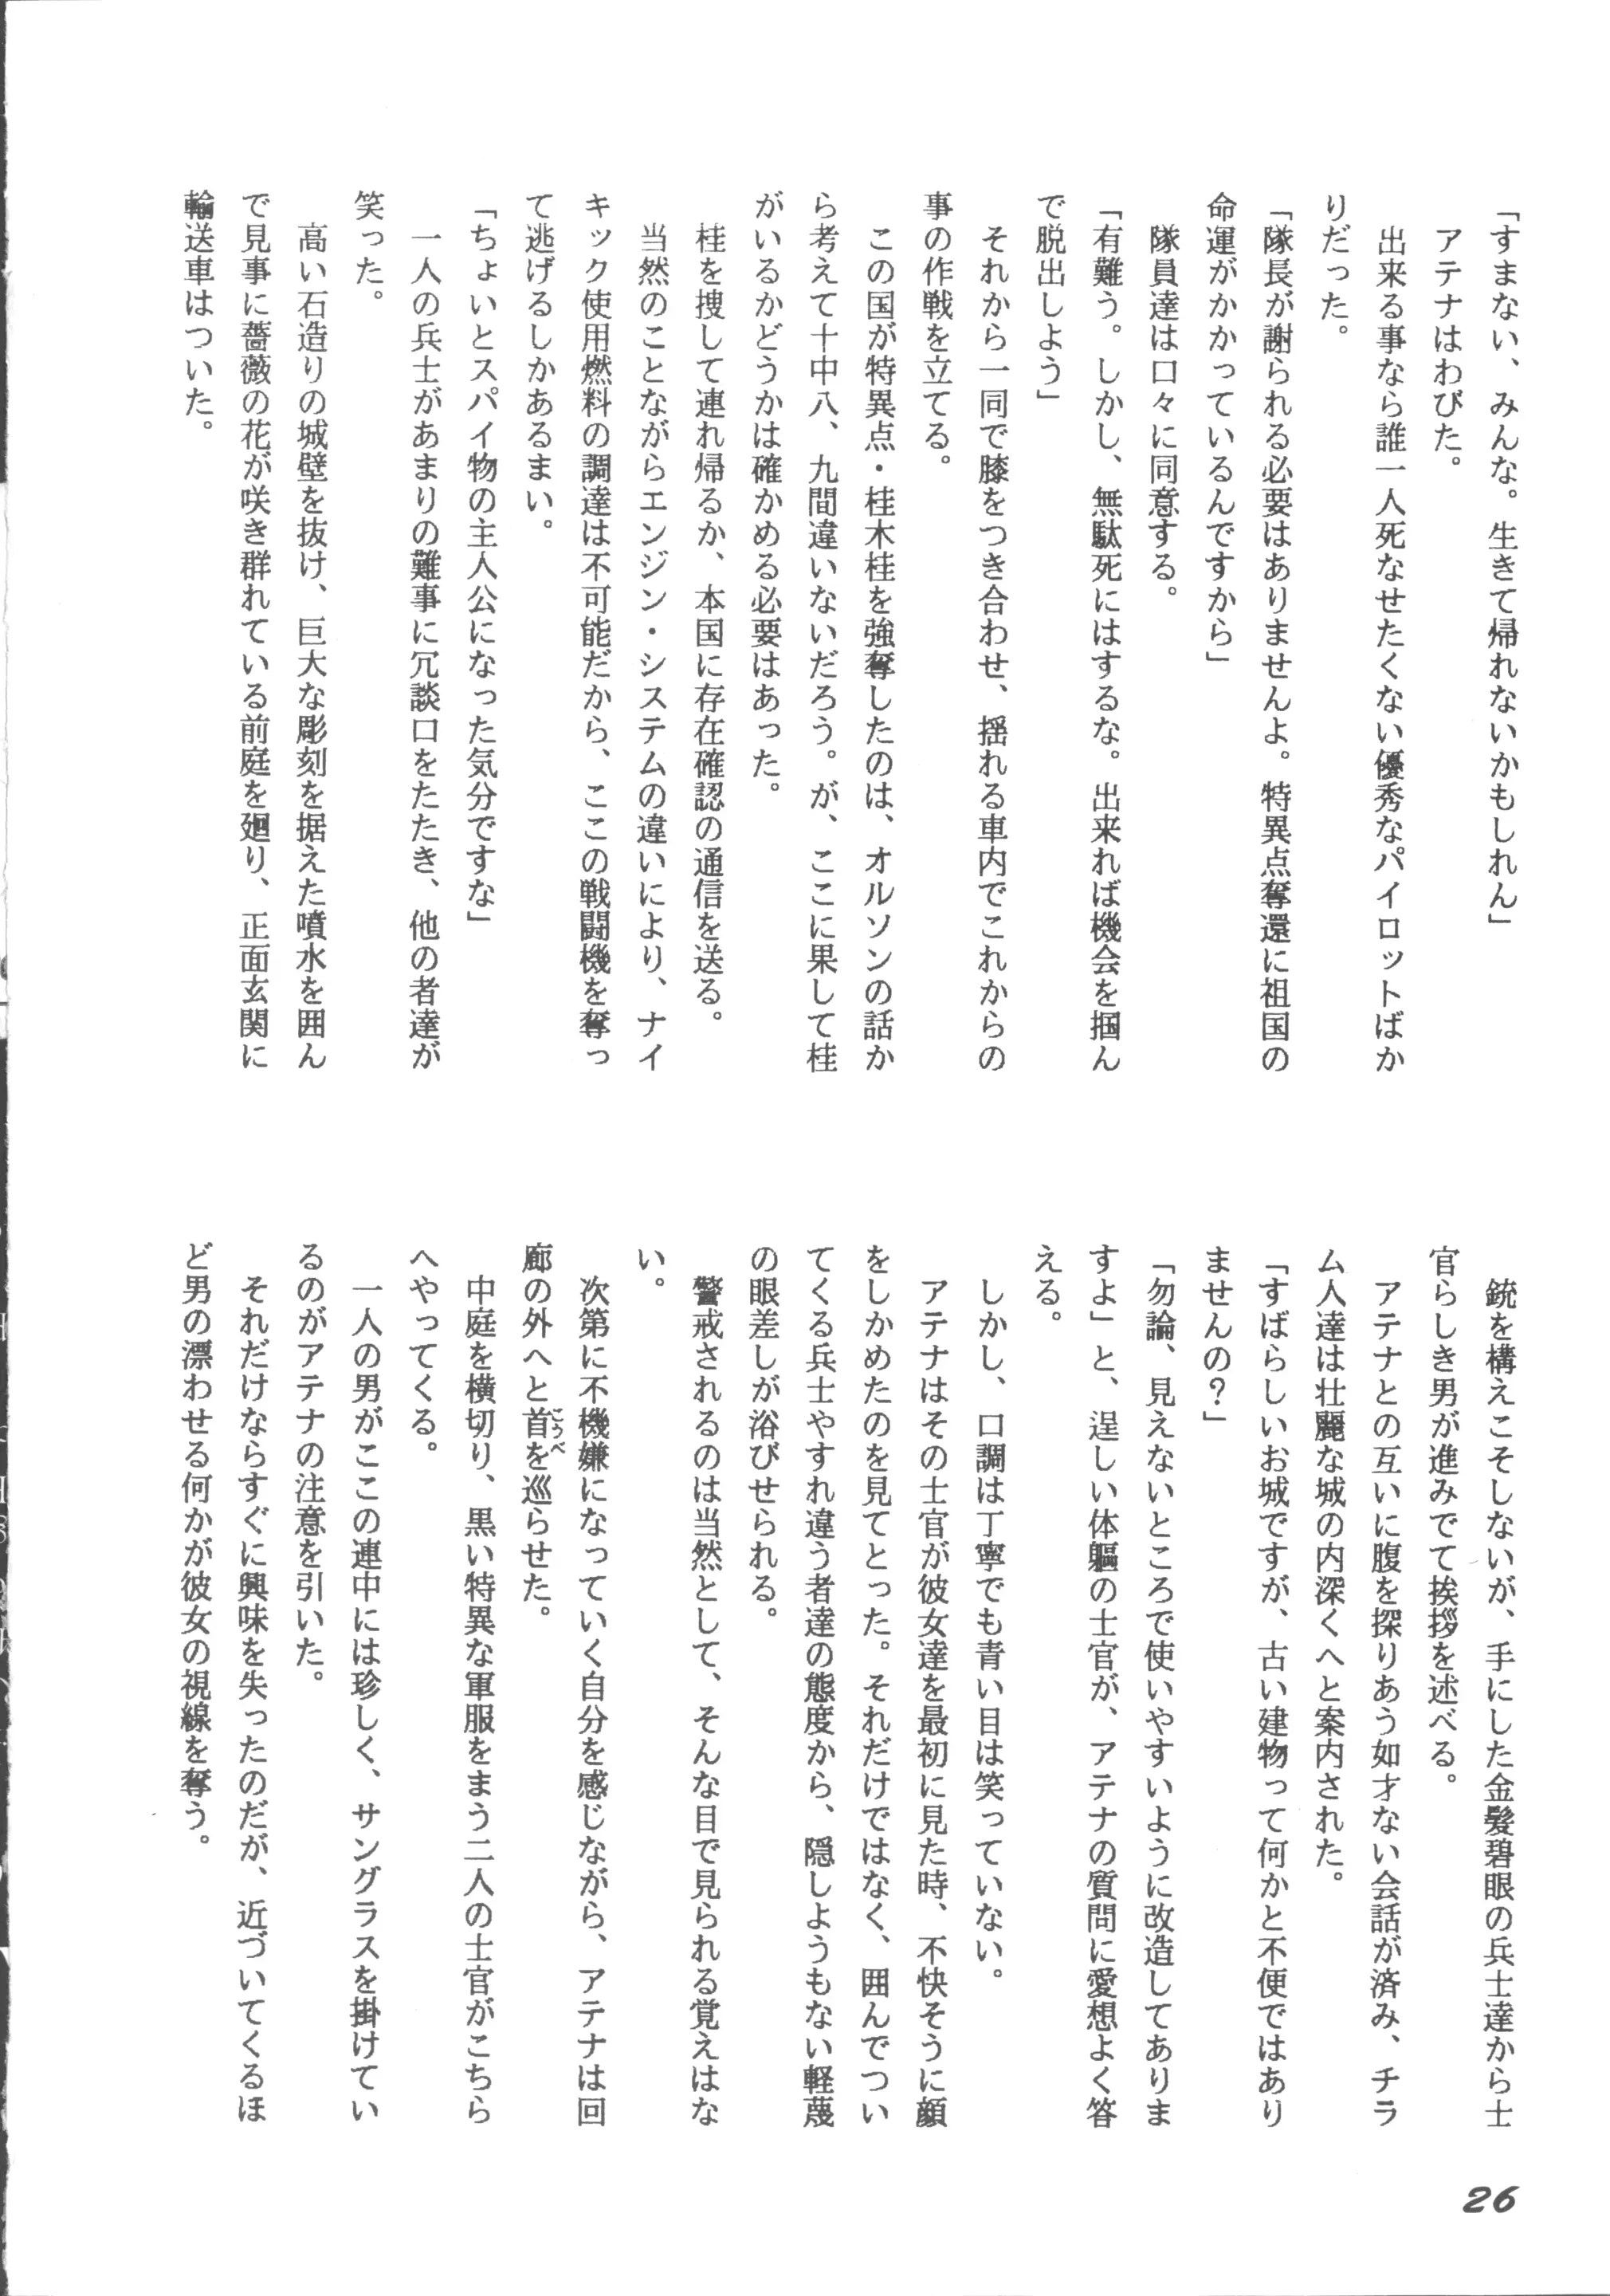 「すまない、みんな。生きて帰れないかもしれん」
アテナはわびた。
出来る事なら誰一人死なせたくない優秀なパイロットばか
りだった。
「隊長が謝られる必要はありませんよ。特異点奪還に祖国の
命運がかかっているんですから」
隊員達は口々に同意する。
「有難う。しかし、無駄死にはするな。出来れば機会を掴ん
で脱出しよう」
それから一同で膝をつき合わせ、揺れる車内でこれからの
事の作戦を立てる。
この国が特異点・桂木桂を強奪したのは、オルソンの話か
ら考えて十中八、九間違いないだろう。が、ここに果して桂
がいるかどうかは確かめる必要はあった。
桂を捜して連れ帰るか、本国に存在確認の通信を送る。
当然のことながらエンジン・システムの違いにより、ナイ
キック使用燃料の調達は不可能だから、ここの戦闘機を奪っ
て逃げるしかあるまい。
「ちょいとスパイ物の主人公になった気分ですな」
一人の兵士があまりの難事に冗談口をたたき、他の者達が
笑った。
高い石造りの城壁を抜け、巨大な彫刻を据えた噴水を囲ん
で見事に薔薇の花が咲き群れている前庭を廻り、正面玄関に
輸送車はついた。
銃を構えこそしないが、手にした金髪碧眼の兵士達から士
官らしき男が進みでて挨拶を述べる。
アテナとの互いに腹を探りあう如才ない会話が済み、チラ
ム人達は壮麗な城の内深くへと案内された。
「すばらしいお城ですが、古い建物って何かと不便ではあり
ませんの？」
「勿論、見えないところで使いやすいように改造してありま
すよ」と、逞しい体軀の士官が、アテナの質問に愛想よく答
える。
しかし、口調は丁寧でも青い目は笑っていない。
アテナはその士官が彼女達を最初に見た時、不快そうに顔
をしかめたのを見てとった。それだけではなく、囲んでつい
てくる兵士やすれ違う者達の態度から、隠しようもない軽蔑
の眼差しが浴びせられる。
警戒されるのは当然として、そんな目で見られる覚えはな
い。
次第に不機嫌になっていく自分を感じながら、アテナは回
廊の外へと首を巡らせた。
こうべ
中庭を横切り、黒い特異な軍服をまう二人の士官がこちら
へやってくる。
一人の男がここの連中には珍しく、サングラスを掛けてい
るのがアテナの注意を引いた。
それだけならすぐに興味を失ったのだが、近づいてくるほ
ど男の漂わせる何かが彼女の視線を奪う。
26